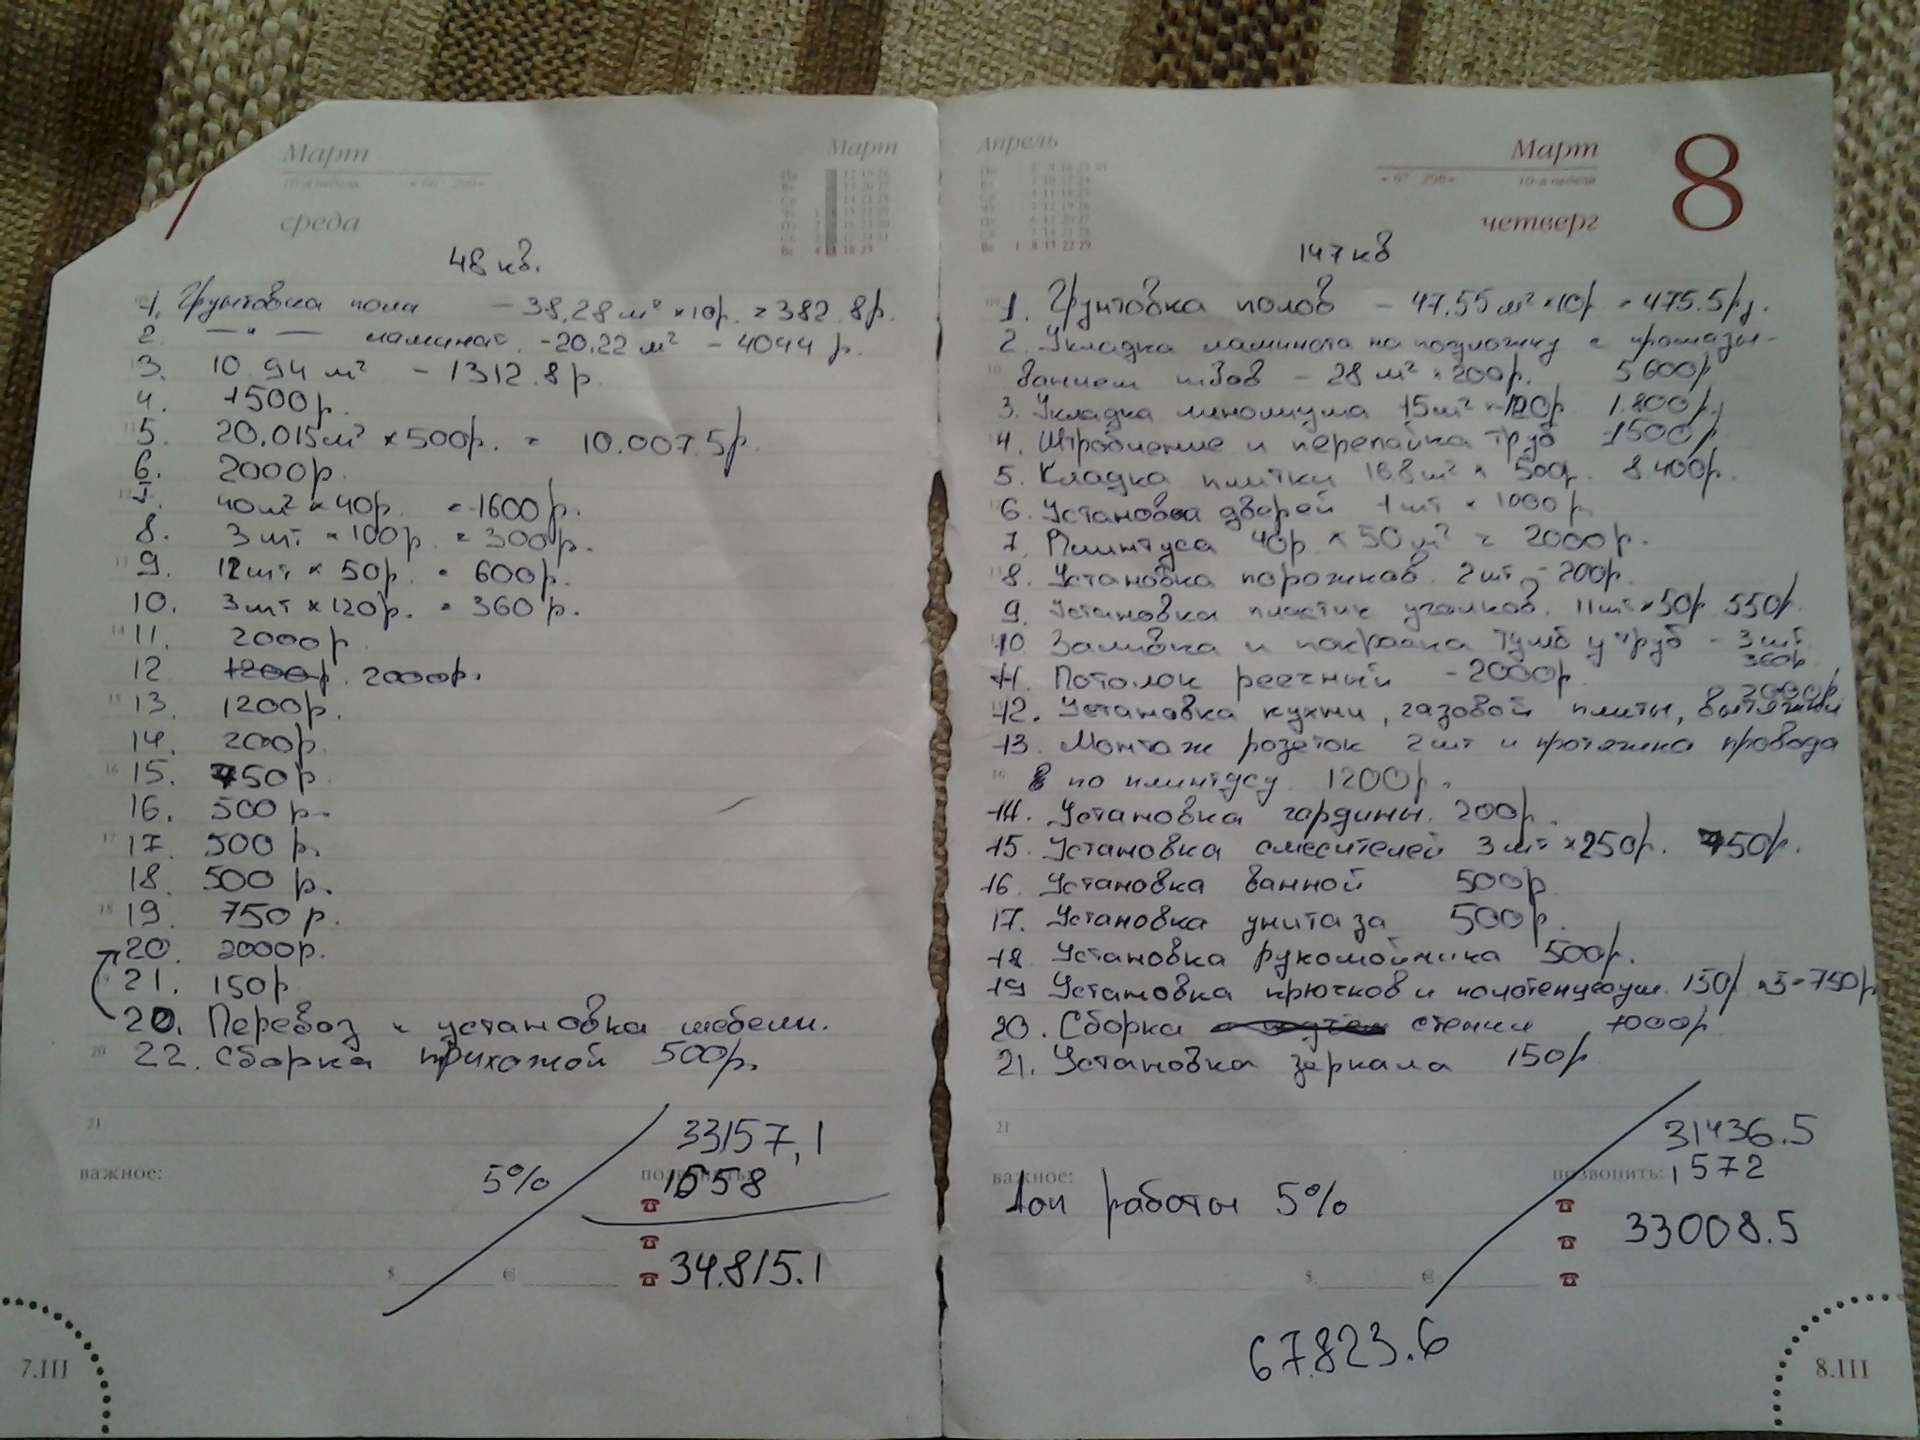 Март
Март
среда
48 кв.
1. Грунтовка пола - 38,28 м² × 10р. = 382.8р.
2. — " — ламинат. - 20.22 м² - 4044 р.
3. 10.94 м² - 1312.8р
4. 1500р.
5. 20.015м² × 500р. = 10.007.5р.
6. 2000р.
7. 40м² × 40р. = 1600р.
8. 3 шт × 100р. = 300р.
9. 12шт × 50р. = 600р.
10. 3шт × 120р. = 360р.
11. 2000р
12 1200р. 2000р.
13. 1200р.
14. 200р.
15. 750р
16. 500р.
17. 500 р.
18. 500 р.
19. 750 р.
20. 2000р.
21. 150р
20. Перевоз и установка мебели.
22. Сборка прихожей 500р.
21
важное:
33157,1
5%
1658
34.815.1
$
€
7.III
Апрель
Март
8
четверг
147 кв
1. Грунтовка полов - 47.55 м² × 10р = 475.5р.
2. Укладка ламината на подложку с промазы-
ванием швов - 28 м² × 200р. 5600р
3. Укладка линолиума 15м² × 120р 1.800р.
4. Штробление и перепайка труб 1500р
5. Кладка плитки 16.8м² × 500р. 8400р.
6. Установка дверей 1шт × 1000р
7. Плинтуса 40р. × 50м² = 2000р.
8. Установка порожков. 2шт - 200р.
9. Установка пластик уголков. 11шт × 50р 550р.
10. Заливка и покраска тумб у труб - 3шт.
360р
11. Потолок реечный - 2000р.
2000р.
12. Установка кухни, газовой плиты, вытяжки
13. Монтаж розеток 2шт и протяжка провода
по плинтусу. 1200р.
14. Установка гардины. 200р.
15. Установка смесителей 3шт × 250р. 750р.
16. Установка ванной 500р
17. Установка унитаза 500р.
18 Установка рукомойника 500р.
19 Установка крючков и полотенцесуш. 150р × 5 = 750р
20. Сборка стенки 1000р.
21. Установка зеркала 150р
21
31436.5
важное:
позвонить: 1572
Доп работы 5%
33008.5
$
€
67.823.6
8.III